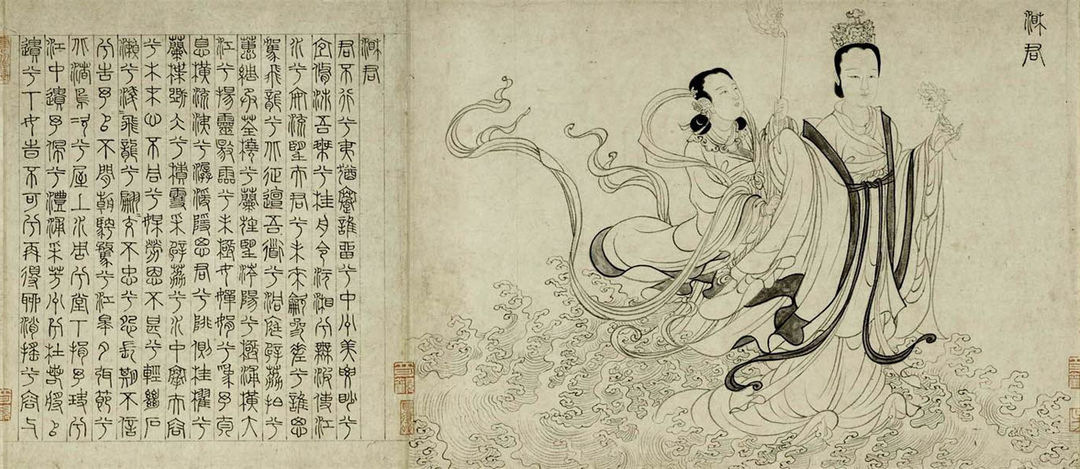 湘君
湘君
君不行兮夷猶蹇誰留兮中洲美要眇兮
宜修沛吾乘兮桂舟令沅湘兮無波使江
水兮安流望夫君兮未來參差兮誰思
駕飛龍兮北征邅吾道兮洞庭薜荔柏兮
蕙綢承荃橈兮蘭旌望涔陽兮極浦橫大
江兮揚靈揚靈兮未極女嬋媛兮為余太
息橫流涕兮潺湲隱思君兮陫側桂櫂兮
蘭枻斲冰兮積雪采薜荔兮水中搴芙蓉
兮木末心不同兮媒勞恩不甚兮輕絕石
瀨兮淺淺飛龍兮翩翩交不忠兮怨長期不信
兮告余以不閒朝騁騖兮江皋夕弭節兮
北渚鳥次兮屋上水周兮堂下捐余玦兮
江中遺余佩兮澧浦采芳洲兮杜若將以
遺兮下女時不可兮再得聊逍遙兮容與